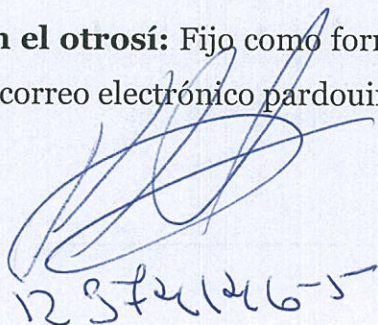 n el otrosí: Fijo como forn
correo electrónico pardouin